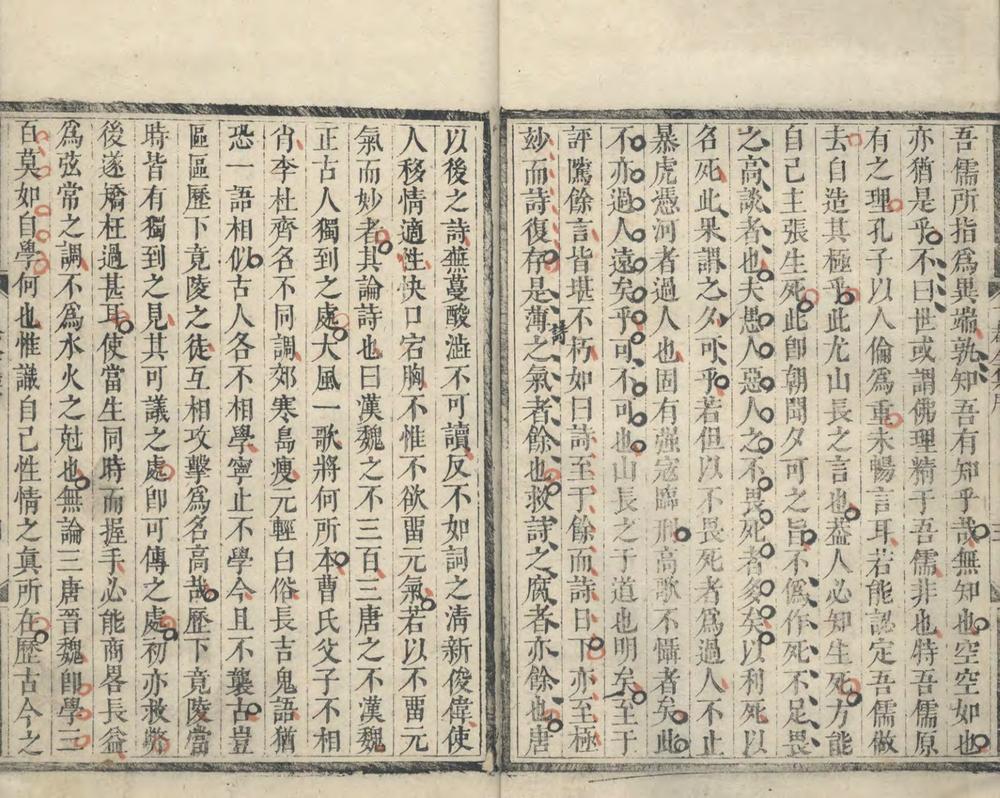 吾儒所指為異端孰知吾有知乎哉無知也空空如也
亦猶是乎不曰世或謂佛理精于吾儒非也特吾儒原
有之理孔子以人倫為重未暢言耳若能認定吾儒做
去自造其極乎此尤山長之言也葢人必知生死方能
自己主張生死此卽朝聞夕可之旨不僞作死不足畏
之高談者也夫愚人惡人之不畏死者多矣以利死以
名死此果謂之夕可乎若但以不畏死者為過人不止
暴虎憑河者過人也固有强寇臨刑高歌不懾者矣此
不亦過人遠矣乎可不可也山長之于道也明矣至于
評騭餘言皆堪不朽如曰詩至于餘而詩日下亦至極
妙而詩復存是薄之氣者餘也救詩之腐者亦餘也唐
詩
以後之詩蕪蔓酸澁不可讀反不如詞之淸新俊偉使
人移情適性快口宕胸不惟不欲畱元氣若以不畱元
氣而妙者其論詩也曰漢魏之不三百三唐之不漢魏
正古人獨到之處大風一歌將何所本曹氏父子不相
肖李杜齊名不同調郊寒島瘦元輕白俗長吉鬼語猶
恐一語相似古人各不相學寧止不學今且不襲古豈
區區歷下竟陵之徒互相攻擊為名高哉歷下竟陵當
時皆有獨到之見其可議之處卽可傳之處初亦救弊
後遂矯枉過甚耳使當生同時而握手必能商畧長益
為弦常之調不為水火之尅也無論三唐晉魏卽學三
百莫如自學何也惟議自己性情之眞所在歷古今之